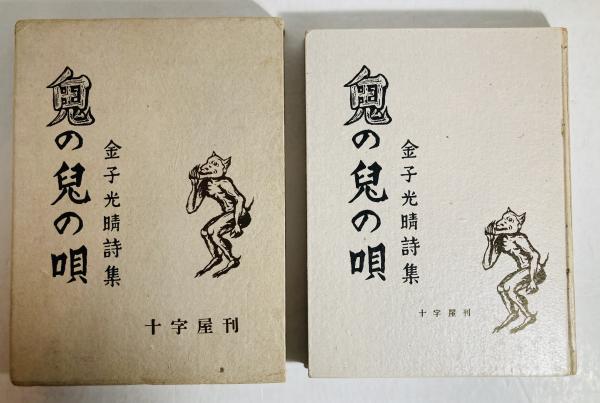 鬼の兒の唄
金子光晴詩集
十字屋刊
鬼の兒の唄
金子光晴詩集
十字屋刊